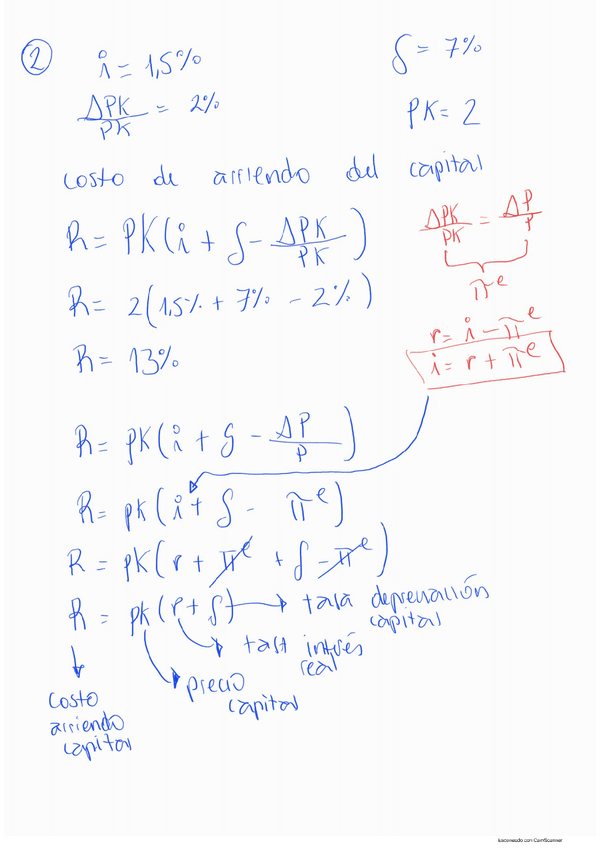 2
i = 1,5%
δ = 7%
ΔPK/PK = 2%
PK = 2
costo de arriendo del capital
R = PK(i + δ - ΔPK/PK)
ΔPK/PK = ΔP/P
πe
R = 2(1,5% + 7% - 2%)
r = i - πe
i = r + πe
R = 13%
R = PK(i + δ - ΔP/P)
R = pK(i + δ - πe)
R = pK(r + πe + δ - πe)
R = pK(r + δ) → tasa depreciación
capital
tasa interés
real
precio
capital
costo
arriendo
capital
Escaneado con CamScanner